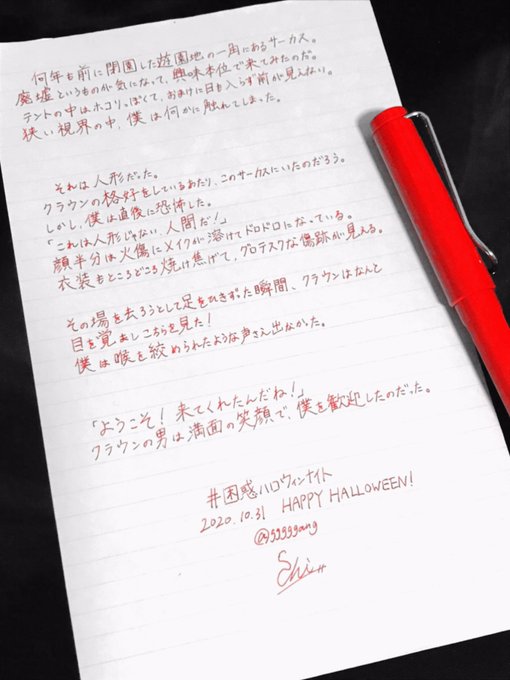 何年も前に閉園した遊園地の一角にあるサーカス。
廃墟というものが気になって、興味本位で来てみたのだ。
テントの中はホコリっぽくて、おまけに日も入らず前が見えない。
狭い視界の中、僕は何かに触れてしまった。
それは人形だった。
クラウンの格好をしているあたり、このサーカスにいたのだろう。
しかし、僕は直後に恐怖した。
「これは人形じゃない、人間だ!」
顔半分は火傷にメイクが溶けてドロドロになっている。
衣装もところどころ焼け焦げて、グロテスクな傷跡が見える。
その場を去ろうとして足をひきずった瞬間、クラウンはなんと
目を覚ましこちらを見た!
僕は喉を絞められたような声さえ出なかった。
「ようこそ!来てくれたんだね!」
クラウンの男は満面の笑顔で、僕を歓迎したのだった。
#困惑ハロウィンナイト
2020.10.31 HAPPY HALLOWEEN!
@gggggang